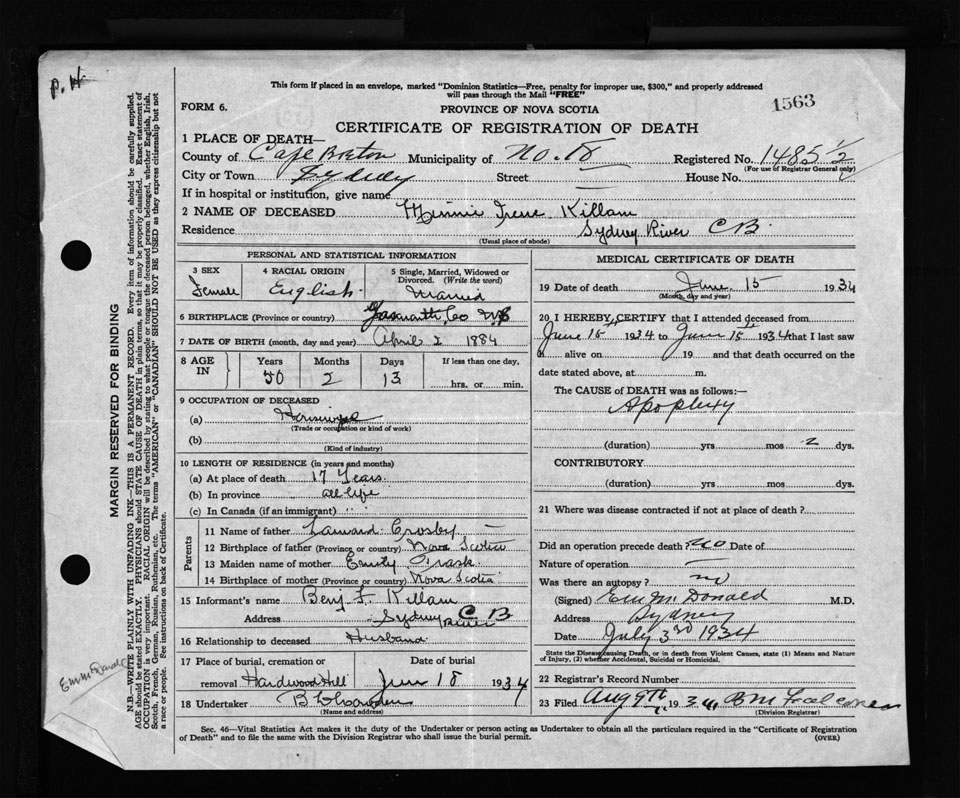 P. H.
This form if placed in an envelope, marked "Dominion Statistics—Free, penalty for improper use, $300," and properly addressed
will pass through the Mail "FREE"
FORM 6.
PROVINCE OF NOVA SCOTIA
1563
CERTIFICATE OF REGISTRATION OF DEATH
1 PLACE OF DEATH—
County of Cape Breton Municipality of No. Registered No. 1485½
(For use of Registrar General only)
City or Town Sydney Street — House No.
If in hospital or institution, give name —
2 NAME OF DECEASED Minnie Irene Killam
Residence Sydney River C B.
(Usual place of abode)
PERSONAL AND STATISTICAL INFORMATION
3 SEX Female
4 RACIAL ORIGIN English
5 Single, Married, Widowed or Divorced. (Write the word) Married
6 BIRTHPLACE (Province or country) Co NS
7 DATE OF BIRTH (month, day and year) April 2 1884
8 AGE IN Years 50 Months 2 Days 13 If less than one day, hrs. or min.
9 OCCUPATION OF DECEASED
(a) Housewife
(Trade or occupation or kind of work)
(b)
(Kind of industry)
10 LENGTH OF RESIDENCE (in years and months)
(a) At place of death 17 Years.
(b) In province all life
(c) In Canada (if an immigrant) " "
Parents
11 Name of father Crosby —
12 Birthplace of father (Province or country) Nova Scotia
13 Maiden name of mother Emily Trask
14 Birthplace of mother (Province or country) Nova Scotia
15 Informant's name Benj F. Killam
Address Sydney River C B
16 Relationship to deceased Husband
17 Place of burial, cremation or removal Hardwood Hill
Date of burial June 18 1934
18 Undertaker B
(Name and address)
MEDICAL CERTIFICATE OF DEATH
19 Date of death June. 15 1934
(Month, day and year)
20 I HEREBY CERTIFY that I attended deceased from
June 15th 1934 to June 15th 1934 that I last saw
h alive on 19 and that death occurred on the
date stated above, at m.
The CAUSE OF DEATH was as follows:—
Apoplexy
(duration) yrs mos 2 dys.
CONTRIBUTORY
(duration) yrs mos dys.
21 Where was disease contracted if not at place of death?
Did an operation precede death? No Date of
Nature of operation —
Was there an autopsy? no
(Signed) E M McDonald M.D.
Address Sydney
Date July 3rd 1934
State the Disease causing Death, or in death from Violent Causes, state (1) Means and Nature
of Injury, (2) whether Accidental, Suicidal or Homicidal.
22 Registrar's Record Number
23 Filed Aug 9th 1934
(Division Registrar)
Sec. 46—Vital Statistics Act makes it the duty of the Undertaker or person acting as Undertaker to obtain all the particulars required in the "Certificate of Registration
of Death" and to file the same with the Division Registrar who shall issue the burial permit.
(OVER)
MARGIN RESERVED FOR BINDING
N.B.—WRITE PLAINLY WITH UNFADING INK—THIS IS A PERMANENT RECORD. Every item of information should be carefully supplied.
AGE should be stated EXACTLY. PHYSICIANS should STATE CAUSE OF DEATH in plain terms, so that it may be properly classified. Exact statement of
OCCUPATION is very important. RACIAL ORIGIN will be described by stating to what people or tongue the deceased person belonged, whether English, Irish,
Scotch, French, German, Russian, Ruthenian, etc. The terms "AMERICAN" or "CANADIAN" SHOULD NOT BE USED as they express citizenship but not
a race or people. See instructions on back of Certificate.